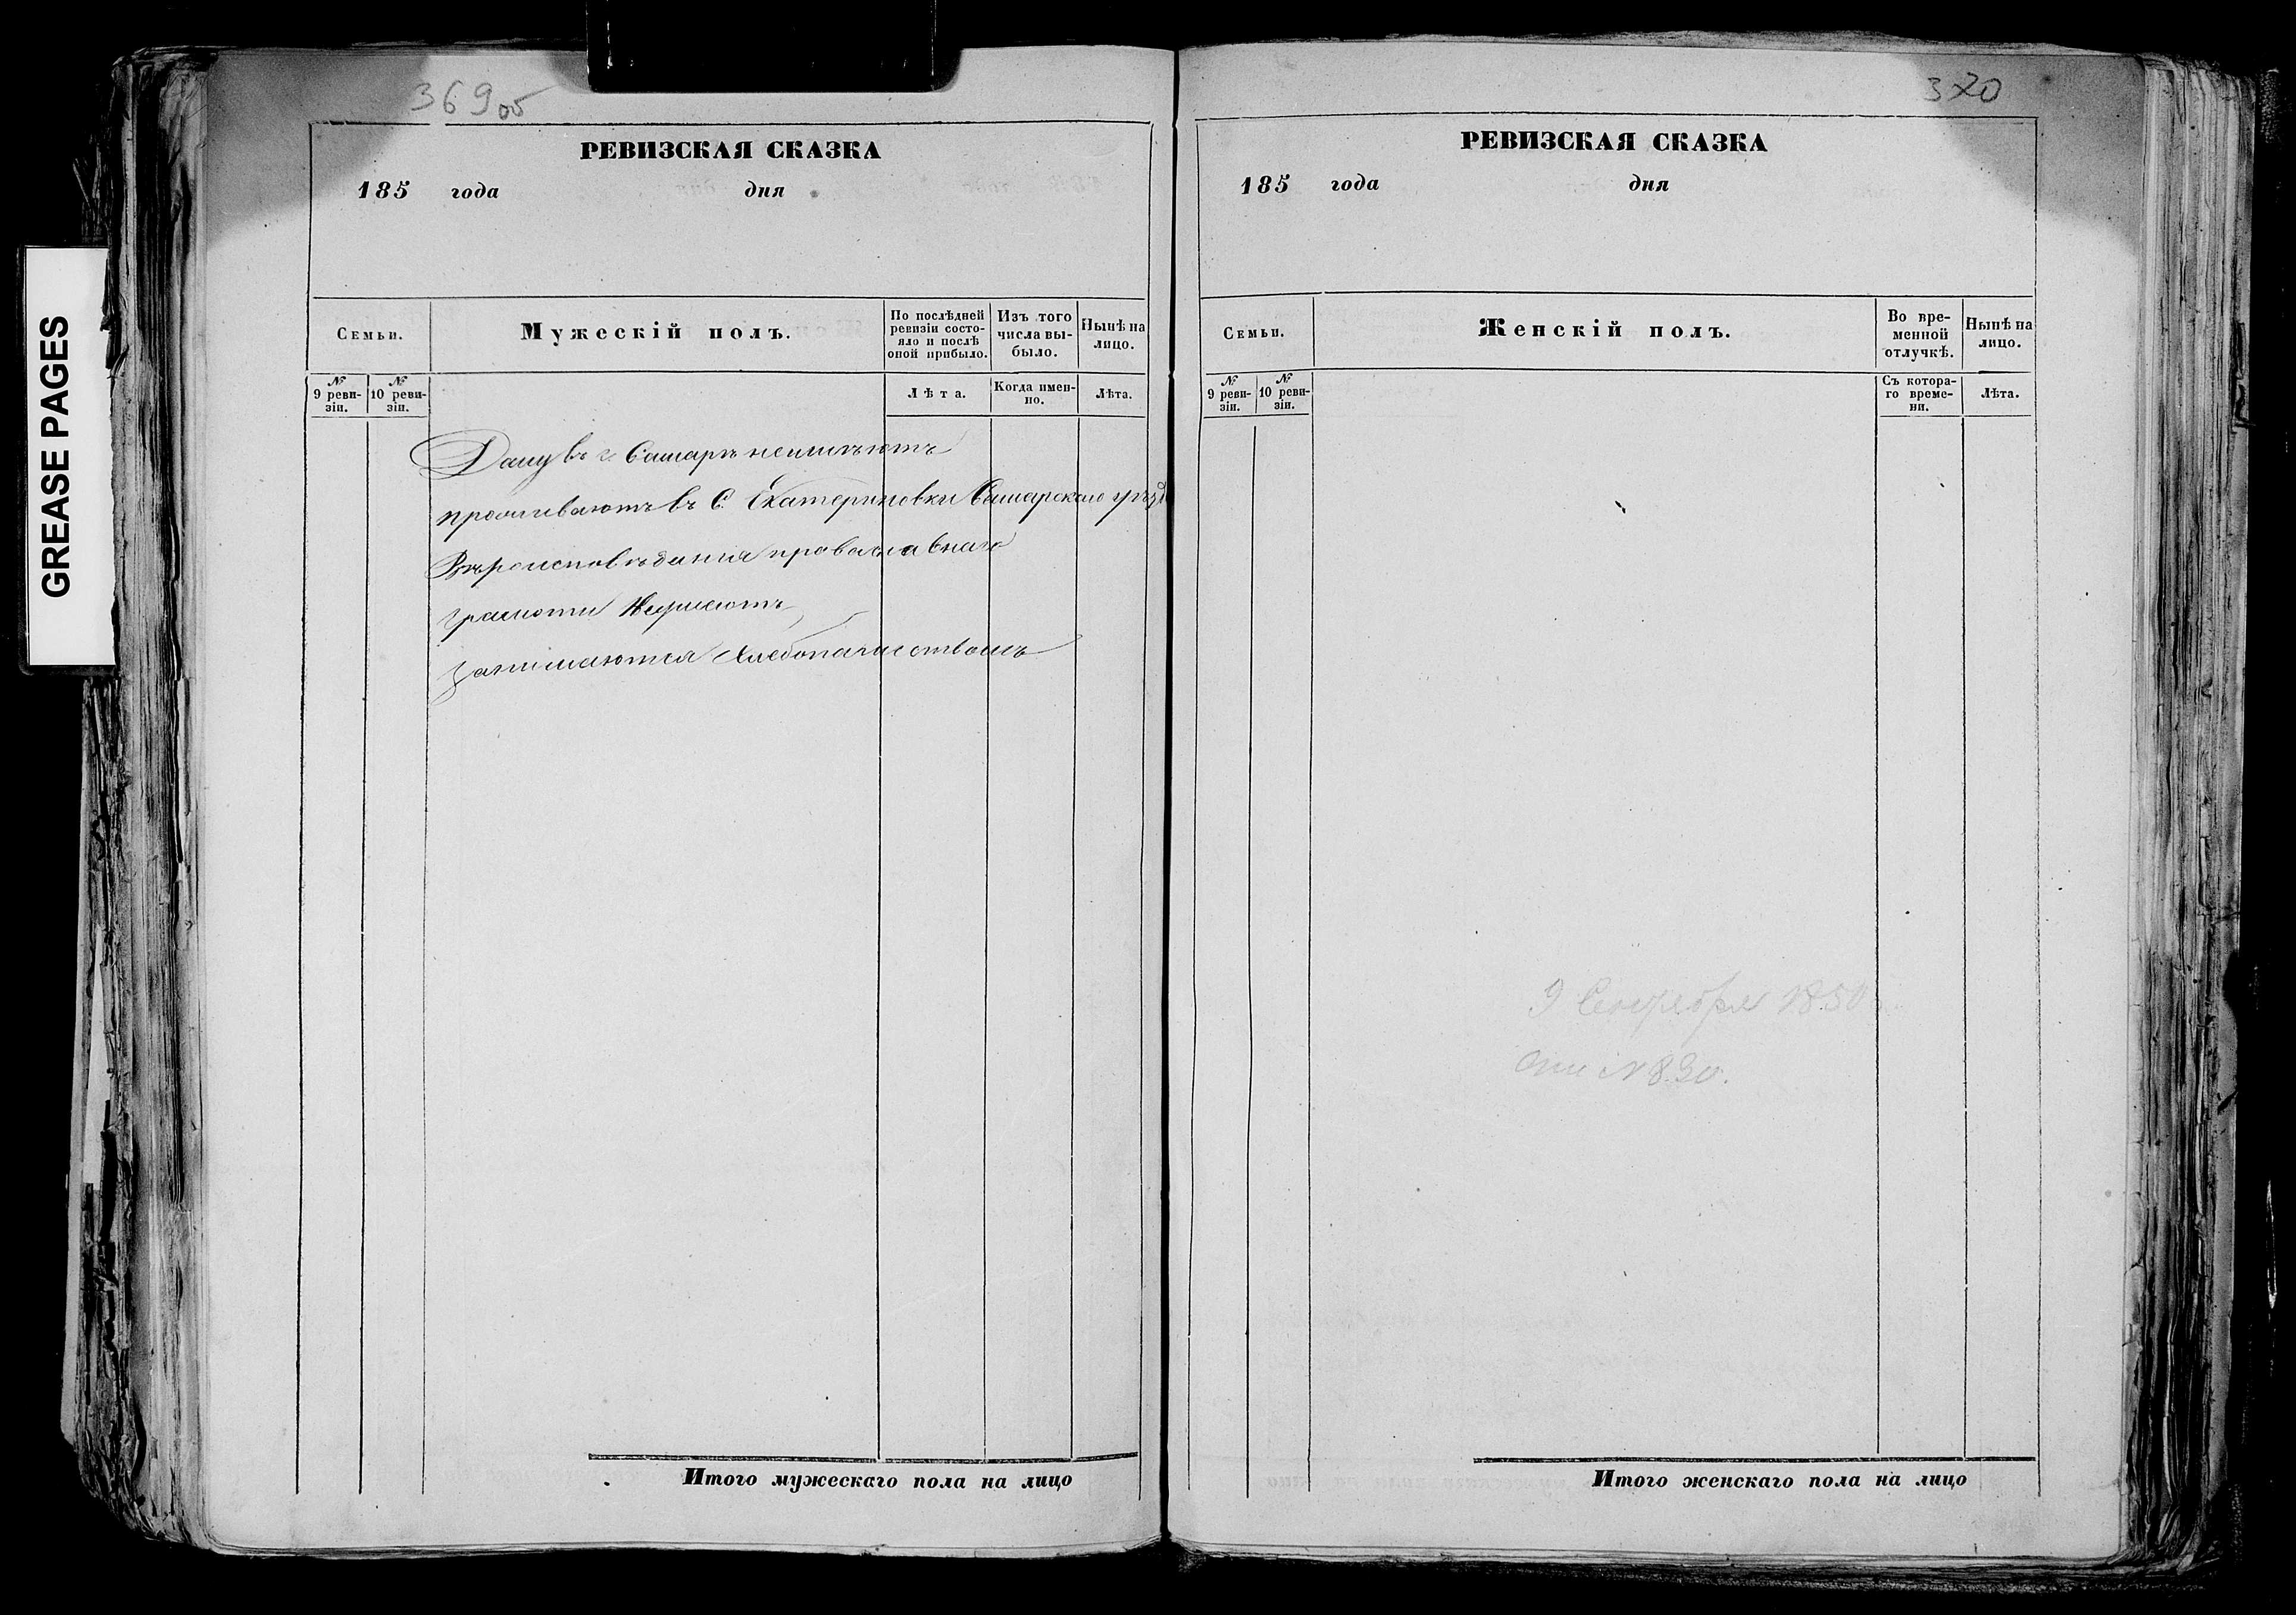 GREASE PAGES
369об
РЕВИЗСКАЯ СКАЗКА
185 года дня
Семьи.
Мужескій полъ.
По послѣдней ревизіи состо-
яло и послѣ
оной прибыло.
Изъ того
числа вы-
было.
Нынѣ на
лицо.
№
9 реви-
зіи.
№
10 реви-
зіи.
Лѣта.
Когда имен-
но.
Лѣта.
Дому въ г. Самарѣ неимѣютъ
проживаютъ въ С. Екатериновки Самарскаго уѣзд
Вѣроисповѣданія православнаго
грамоти Неумѣютъ
занимаются хлебопашествомъ
Итого мужескаго пола на лицо
370
РЕВИЗСКАЯ СКАЗКА
185 года дня
Семьи.
Женскій полъ.
Во вре-
менной
отлучкѣ.
Нынѣ на
лицо.
№
9 реви-
зіи.
№
10 реви-
зіи.
Съ котора-
го време-
ни.
Лѣта.
9 Сентября 1850
Итого женскаго пола на лицо